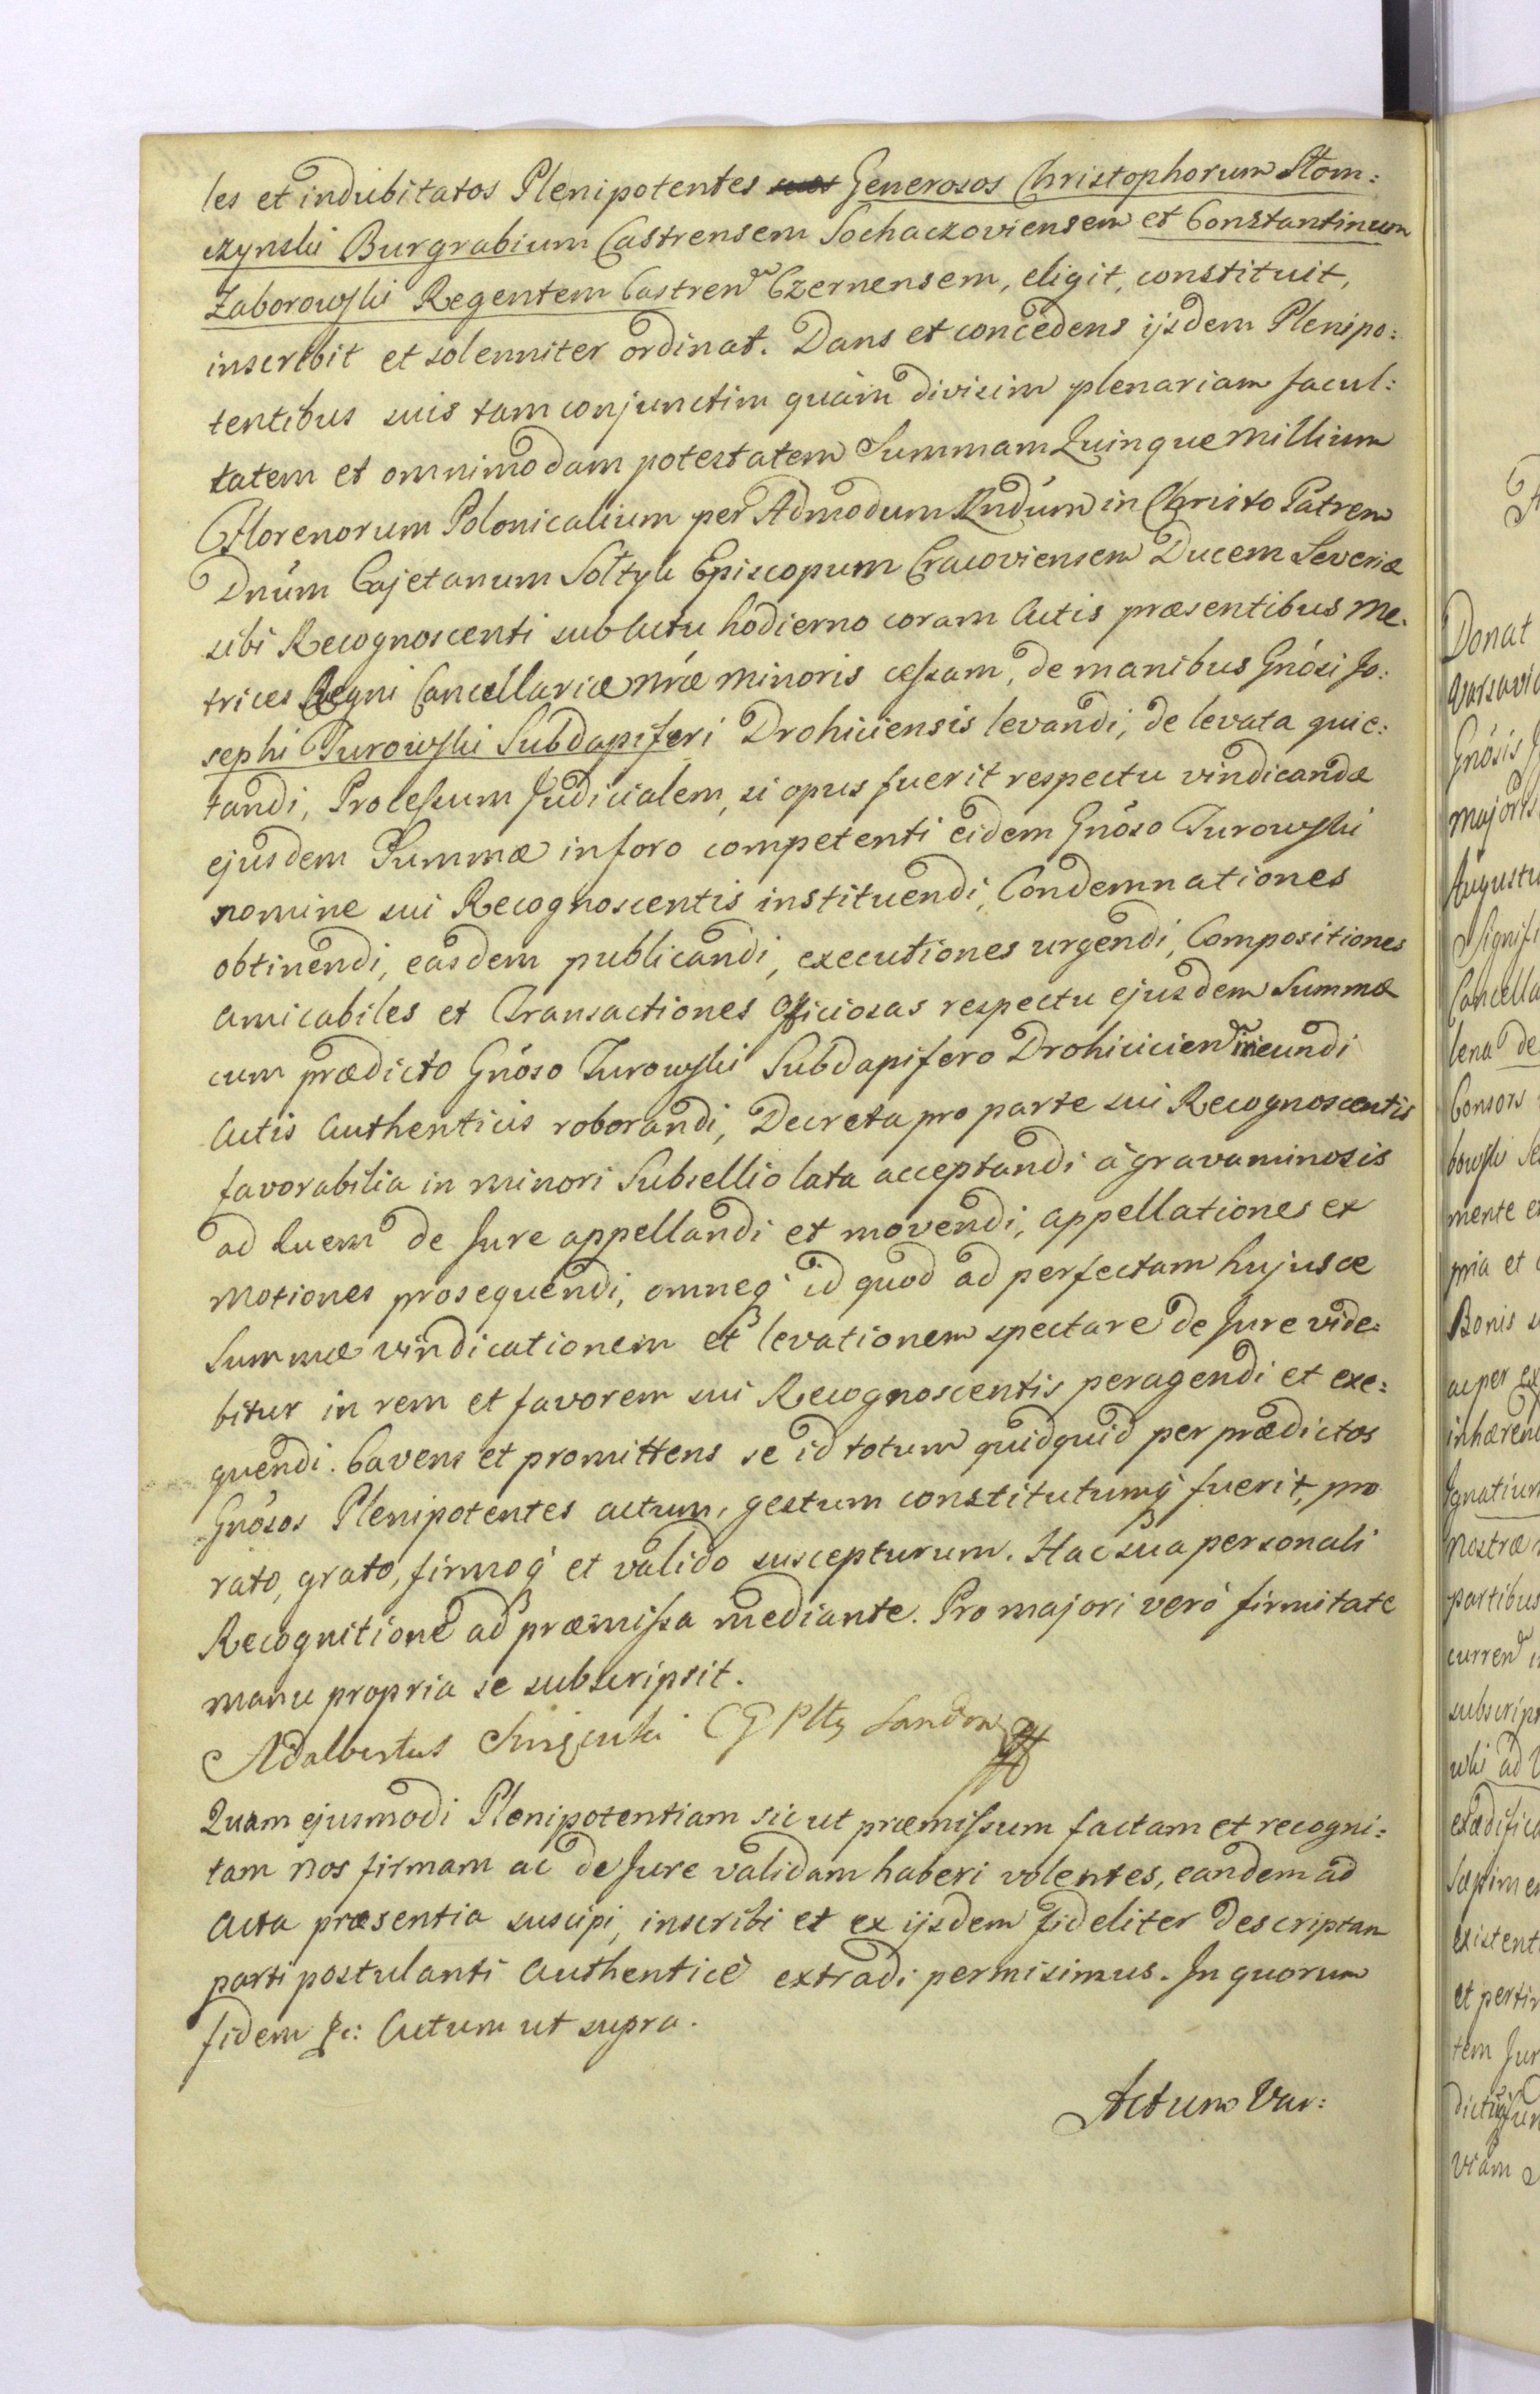 les et indubitatos Plenipotentes suos Generosos Christophorum Stom:
czynski Burgrabium Castrensem Sochaczoviensem et Constantinum
Zaborowski Regentem Castren Czernensem, eligit, constituit,
inscribit et solenniter ordinat. Dans et concedens ijsdem Plenipo:
tentibus suis tam conjunctim quàm divisim plenariam facul:
tatem et omnimodam potestatem Summam Quinque Millium
Florenorum Polonicalium per Admodum Rndum in Christo Patrem
Dnum Cajetanum Sołtyk Episcopum Cracoviensem Ducem Severiæ
sibi Recognoscenti sub Actu hodierno coram Actis præsentibus Me:
trices Regni Cancellariæ nræ Minoris cessam, de manibus Gnosi Jo:
sephi Turowski Subdapiferi Drohiciensis levandi, de levata quie:
tandi, Processum Judicialem, si opus fuerit respectu vindicandæ
ejusdem Summæ in foro competenti eidem Gnoso Turowski
nomine sui Recognoscentis instituendi, Condemnationes
obtinendi, easdem publicandi, executiones urgendi, Compositiones
amicabiles et Transactiones officiosas respectu ejusdem Summæ
cum prædicto Gnoso Turowski Subdapifero Drohicicien ineundi
Actis Authenticis roborandi, Decreta pro parte sui Recognoscentis
favorabilia in minori Subsellio lata acceptandi à gravaminosis
ad quem de Jure appellandi et movendi, appellationes et
motiones prosequendi, omneq̀ id quod ad perfectam hujusce
Summæ vindicationem et levationem spectare de Jure vide:
bitur in rem et favorem sui Recognoscentis peragendi et exe:
quendi. Cavens et promittens se id totum quidquid per prædictos
Gnosos Plenipotentes actum, gestum constitutumq̀ fuerit, pro
rato, grato, firmoq̀ et valido suscepturum. Hac sua personali
Recognitione ad præmissa mediante. Pro majori verò firmitate
manu propria se subscripsit.
Adalbertus CG Sandom
Quam ejusmodi Plenipotentiam sic ut præmissum factam et recogni:
tam nos firmam ac de Jure validam haberi volentes, eandem ad
Acta præsentia suscipi, inscribi et ex ijsdem fideliter descriptam
parti postulanti authenticè extradi permisimus. In quorum
fidem &c: Actum ut supra.
Actum Var:
Donat
Gnosis
majoris
Augustu
Signifi
Cancella
lena de
Consors
mente et
pria et
Bonis
ac per ex
inhæren
Ignatium
nostræ
partibus
curren
subscrips
ski ad
exædifica
existent
et pertin
tem Jur
viam